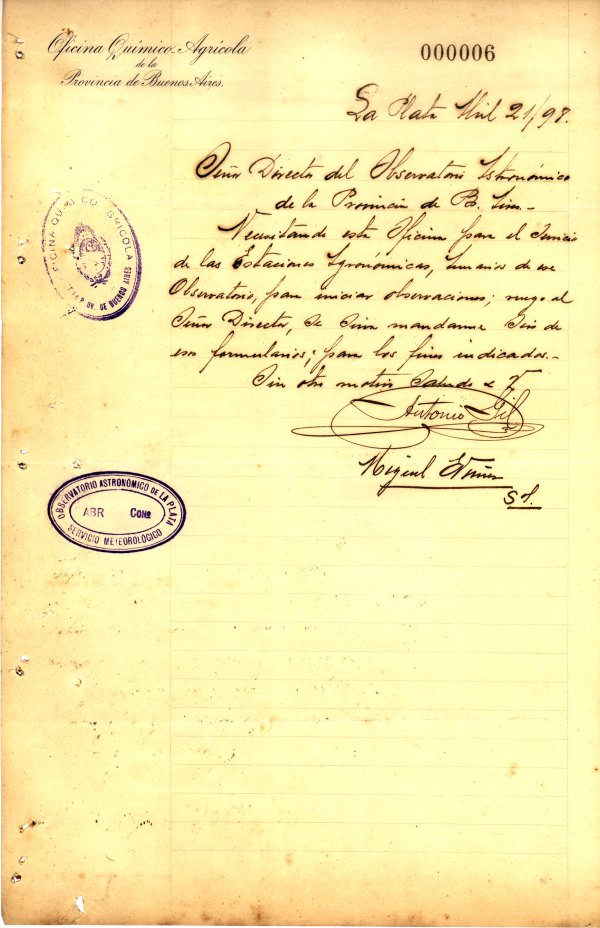 Oficina Químico-Agrícola
de la
Provincia de Buenos Aires.
000006
La Plata Abril 21/98.
Señor Director del Observatorio Astronómico
de la Provincia de Bs. Aires.-
Necesitando esta Oficina para el Servicio
de las Estaciones Agronómicas, de ese
Observatorio, para iniciar observaciones; ruego al
Señor Director, se sirva mandarme seis de
esos formularios; para los fines indicados.-
Sin otro motivo saludo a V
Antonio Gil
Miguel
OFICINA QUIMICO AGRICOLA
DE BUENOS AIRES
OBSERVATORIO ASTRONÓMICO DE LA PLATA
ABR CONº
SERVICIO METEOROLÓGICO